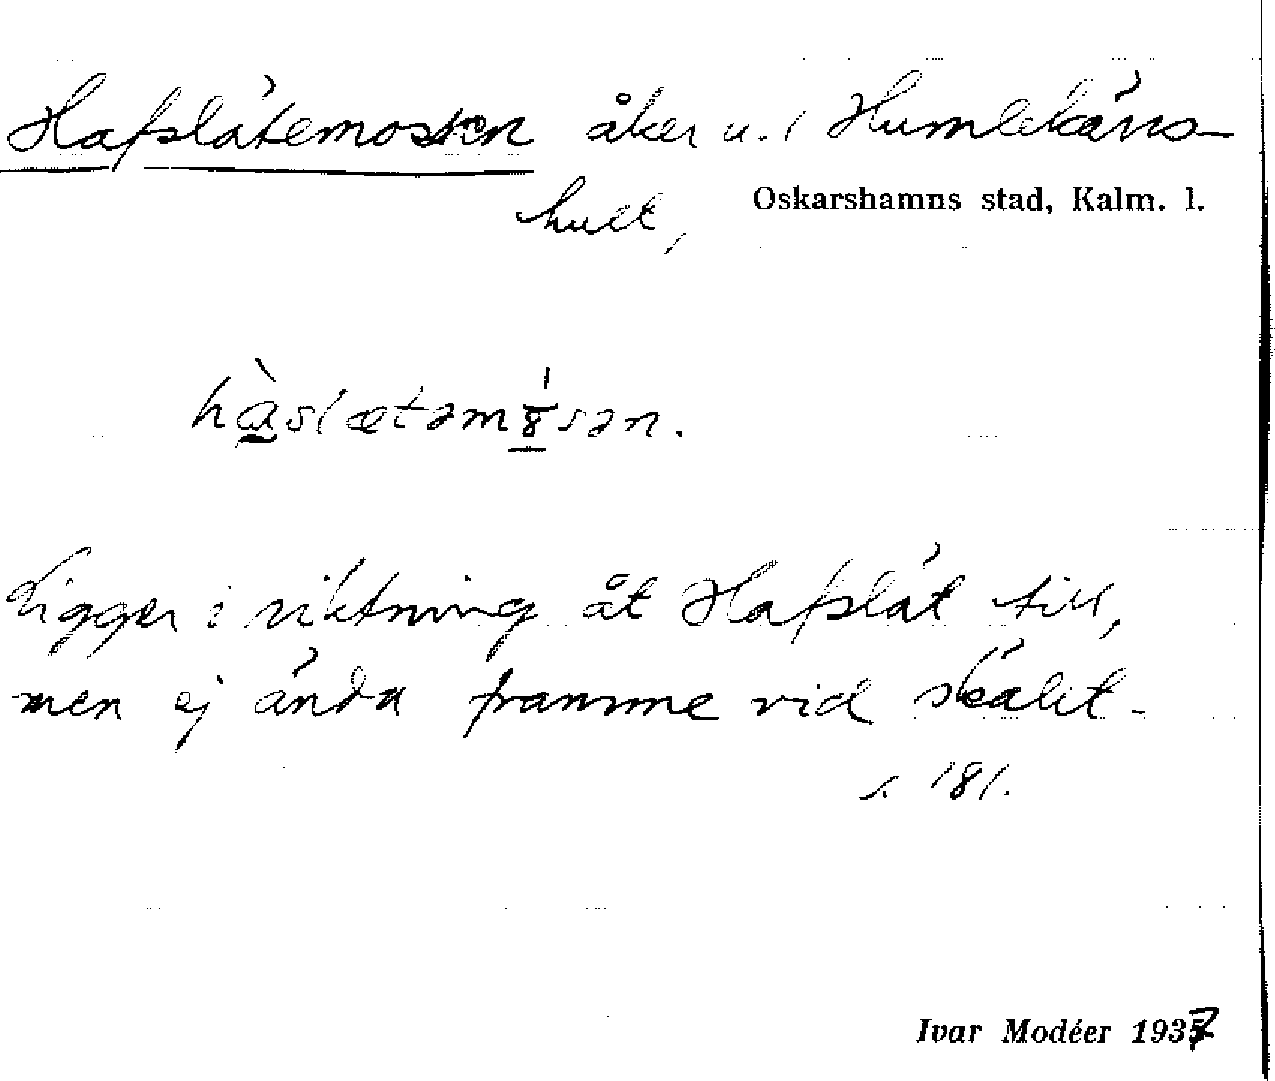 Hafslätemossen åker u. / Humlekärrs-
hult,
Oskarshamns stad, Kalm. l.
hàslætəmȣ́sən.
Ligger i riktning åt Hafslät till,
men ej ända framme vid skälet.
s. 181.
Ivar Modéer 1937